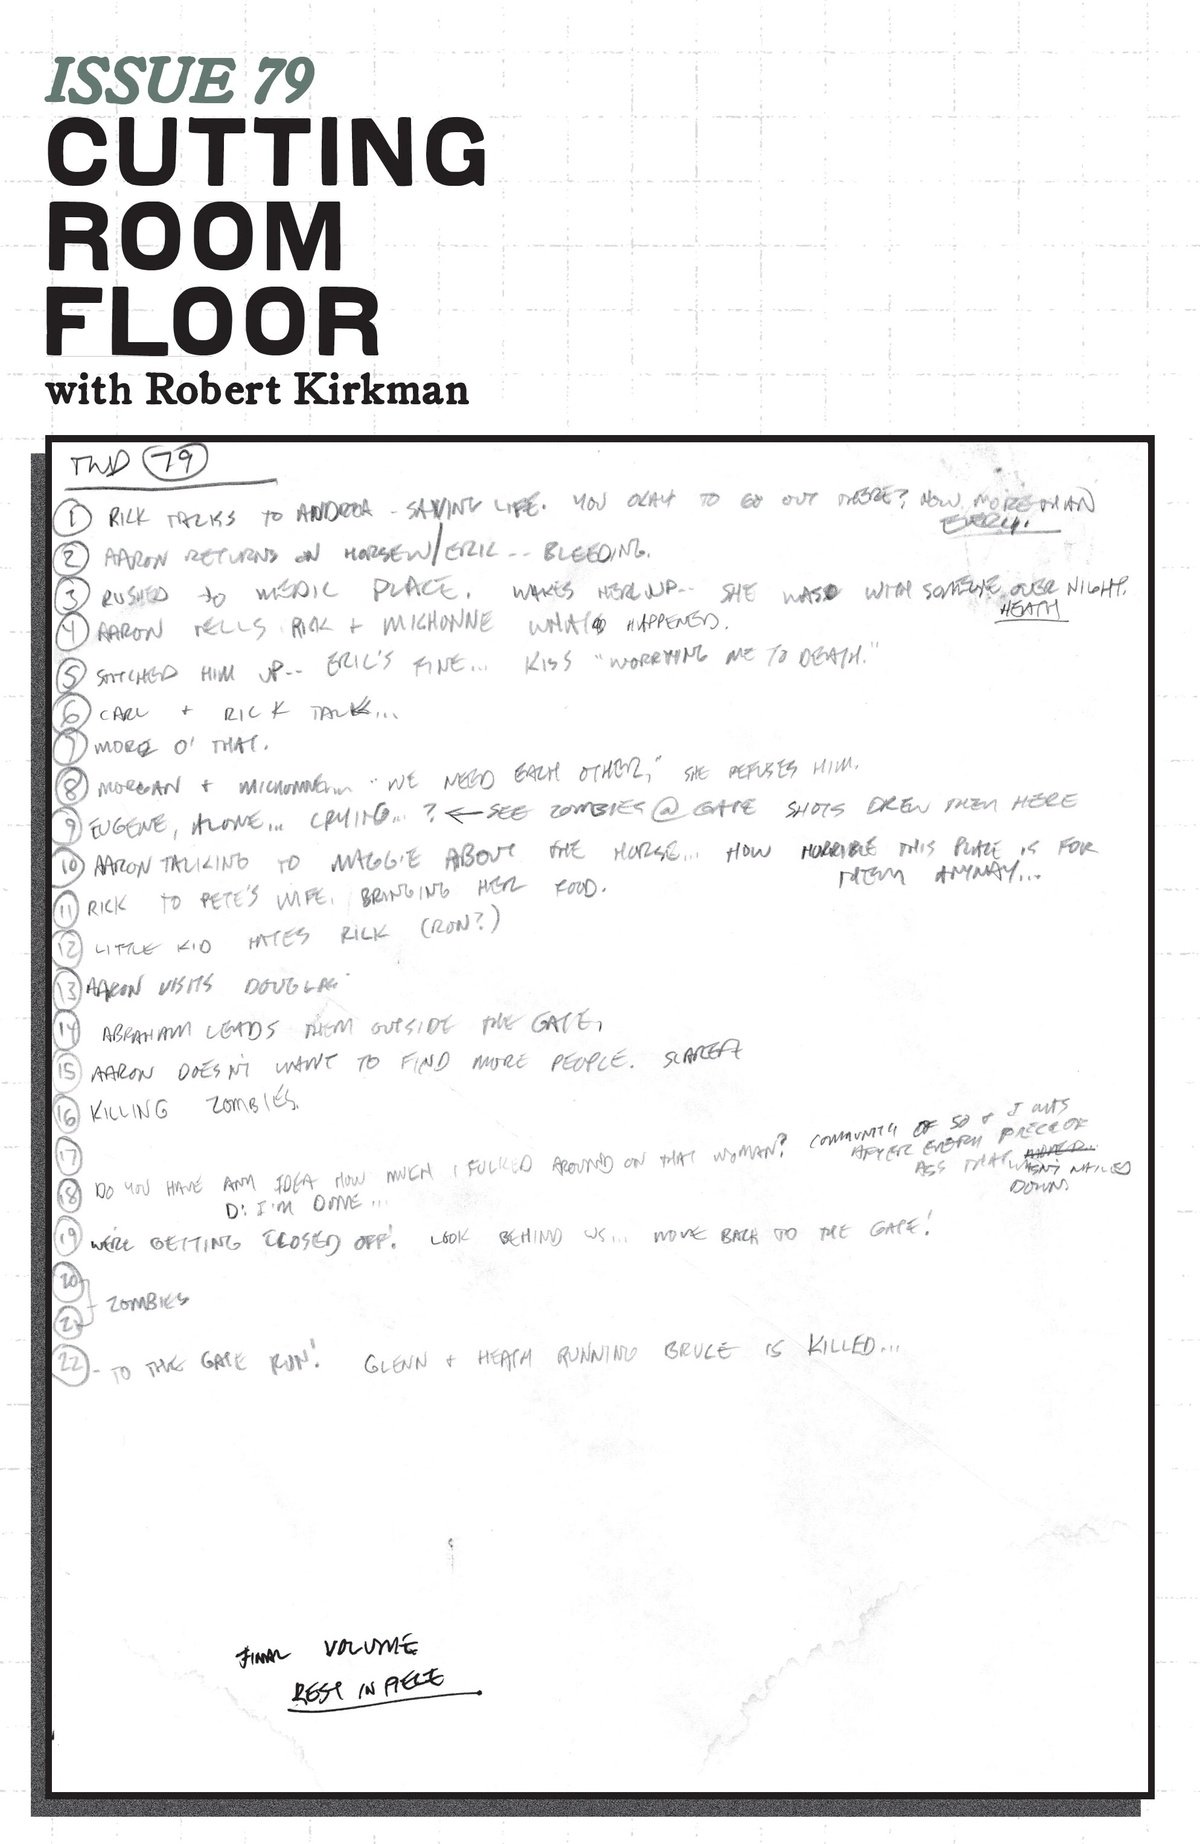 ISSUE 79
CUTTING
ROOM
FLOOR
with Robert Kirkman
TWD 79
1 RICK TALKS TO ANDREA - SAVING LIFE. YOU OKAY TO GO OUT THERE? NOW MORE THAN
EVER.
2 AARON RETURNS ON HORSE W/ ERIC -- BLEEDING.
3 RUSHED TO MEDIC PLACE. WAKES HER UP-- SHE WAS WITH SOMEONE OVER NIGHT.
HEATH
4 AARON TELLS RICK + MICHONNE WHAT HAPPENED.
5 STITCHED HIM UP-- ERIC'S FINE... KISS "WORRYING ME TO DEATH."
6 CARL + RICK TALK...
7 MORE O' THAT.
8 MORGAN + MICHONNE... "WE NEED EACH OTHER," SHE REFUSES HIM.
9 EUGENE, ALONE... CRYING...? ← SEE ZOMBIES @ GATE SHOTS DREW THEM HERE
10 AARON TALKING TO MAGGIE ABOUT THE HORSE... HOW HORRIBLE THIS PLACE IS FOR
THEM ANYWAY...
11 RICK TO PETE'S WIFE. BRINGING HER FOOD.
12 LITTLE KID HATES RICK (RON?)
13 AARON VISITS DOUGLAS
14 ABRAHAM LEADS THEM OUTSIDE THE GATE,
15 AARON DOESN'T WANT TO FIND MORE PEOPLE.
16 KILLING ZOMBIES.
17
18 DO YOU HAVE ANY IDEA HOW MUCH I FUCKED AROUND ON THAT WOMAN? COMMUNITY OF 50 + I WAS
AFTER EVERY PIECE OF
ASS THAT WASN'T NAILED
DOWN.
D: I'M DONE...
19 WE'RE GETTING CLOSED OFF! LOOK BEHIND US... MOVE BACK TO THE GATE!
20
21 ZOMBIES
22 - TO THE GATE RUN! GLENN + HEATH RUNNING BRUCE IS KILLED...
FINAL VOLUME
REST IN PIECE